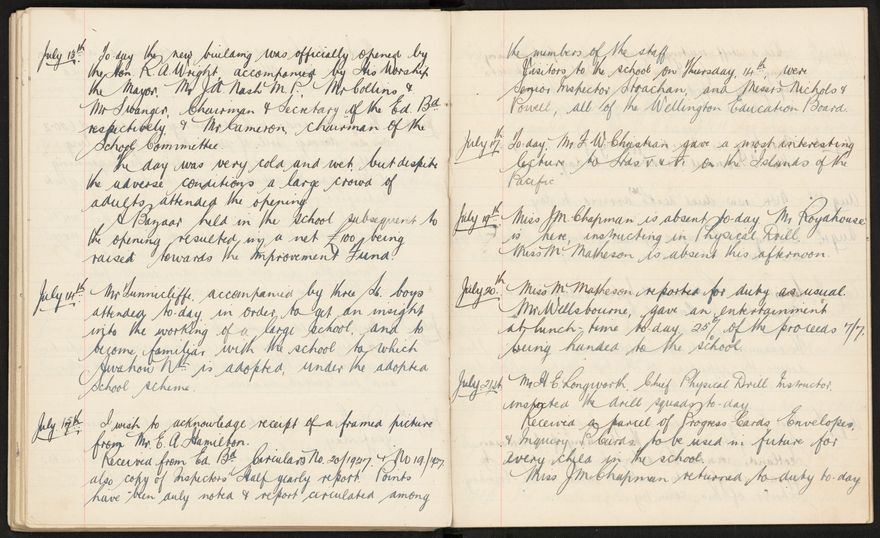 July 13th To day the new building was officially opened by
the Hon. R. A. Wright, accompanied by His Worship
the Mayor, Mr J. A. Nash M.P. Mr Collins &
Mr Swanger, Chairman & Secretary of the Ed. Bd
respectively & Mr Cameron, chairman of the
School Committee
The day was very cold and wet, but despite
the adverse conditions a large crowd of
adults attended the opening.
A Bazaar held in the school subsequent to
the opening resulted in a net £100 being
raised towards the Improvement Fund.
July 14th Mr Tunnicliffe, accompanied by three boys
attended to-day in order to get an insight
into the working of a large school, and to
become familiar with the school to which
is adopted, under the adopted
school scheme.
July 15th I wish to acknowledge receipt of a framed picture
from Mr. E. A. Hamilton.
Received from Ed. Bd Circulars No. 20/1927, & No 19/1927.
also copy of Inspectors Half yearly report. Points
have been duly noted & report circulated among
the members of the staff
Visitors to the school on Thursday, 14th, were
Senior Inspector Strachan, and Messrs Nichols &
Powell, all of the Wellington Education Board.
July 17th To-day, Mr F. W. Christian gave a most interesting
lecture to Stds V & VI. on the Islands of the
Pacific
July 19th Miss J M Chapman is absent to-day Mr Royalhouse
is here instructing in Physical Drill.
Miss Mc Matheson is absent this afternoon.
July 20th Miss Mc Matheson reported for duty as usual.
Mr Wellsbourne, gave an entertainment
at lunch-time to day, 25% of the proceeds 7/7.
being handed to the school.
July 21st Mr H. E. Longworth. Chief Physical Drill Instructor
inspected the drill squads to-day
Received a parcel of Progress Cards, Envelopes,
& Inquiry Cards, to be used in future for
every child in the school.
Miss J M Chapman returned to duty to-day